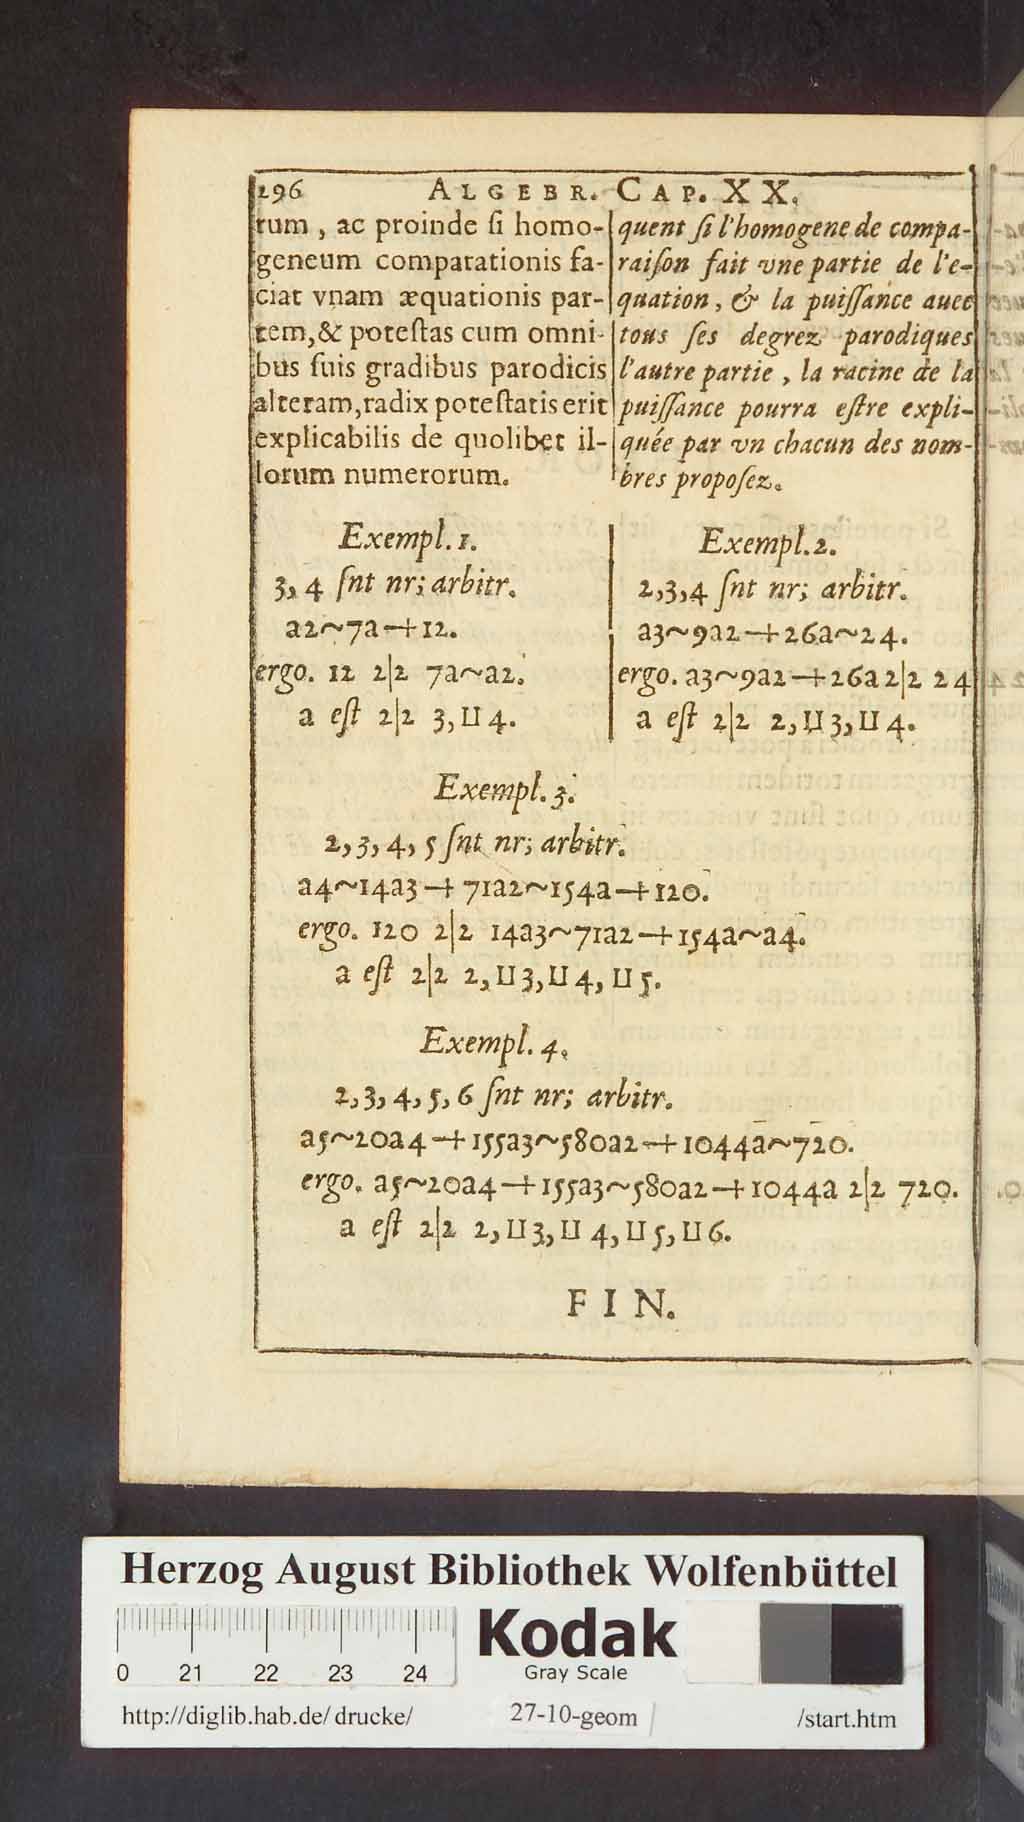 296 ALGEBR. CAP. XX.
rum, ac proinde ſi homo-
geneum comparationis fa-
ciat vnam æquationis par-
tem, & poteſtas cum omni-
bus ſuis gradibus parodicis
alteram, radix poteſtatis erit
explicabilis de quolibet il-
lorum numerorum.
quent ſi l'homogene de compa-
raiſon fait vne partie de l'e-
quation, & la puiſſance auec
tous ſes degrez parodiques
l'autre partie, la racine de la
puiſſance pourra eſtre expli-
quée par vn chacun des nom-
bres propoſez.
Exempl. 1.
3, 4 ſnt nr; arbitr.
a2~7a+12.
ergo. 12 2|2 7a~a2.
a eſt 2|2 3, ⊔ 4.
Exempl. 2.
2,3,4 ſnt nr; arbitr.
a3~9a2+26a~24.
ergo. a3~9a2+26a 2|2 24
a eſt 2|2 2, ⊔ 3, ⊔ 4.
Exempl. 3.
2, 3, 4, 5 ſnt nr; arbitr.
a4~14a3+71a2~154a+120.
ergo. 120 2|2 14a3~71a2+154a~a4.
a eſt 2|2 2, ⊔ 3, ⊔ 4, ⊔ 5.
Exempl. 4.
2, 3, 4, 5, 6 ſnt nr; arbitr.
a5~20a4+155a3~580a2+1044a~720.
ergo. a5~20a4+155a3~580a2+1044a 2|2 720.
a eſt 2|2 2, ⊔ 3, ⊔ 4, ⊔ 5, ⊔ 6.
FIN.
Herzog August Bibliothek Wolfenbüttel
0 21 22 23 24
Kodak
Gray Scale
http://diglib.hab.de/drucke/ 27-10-geom /start.htm